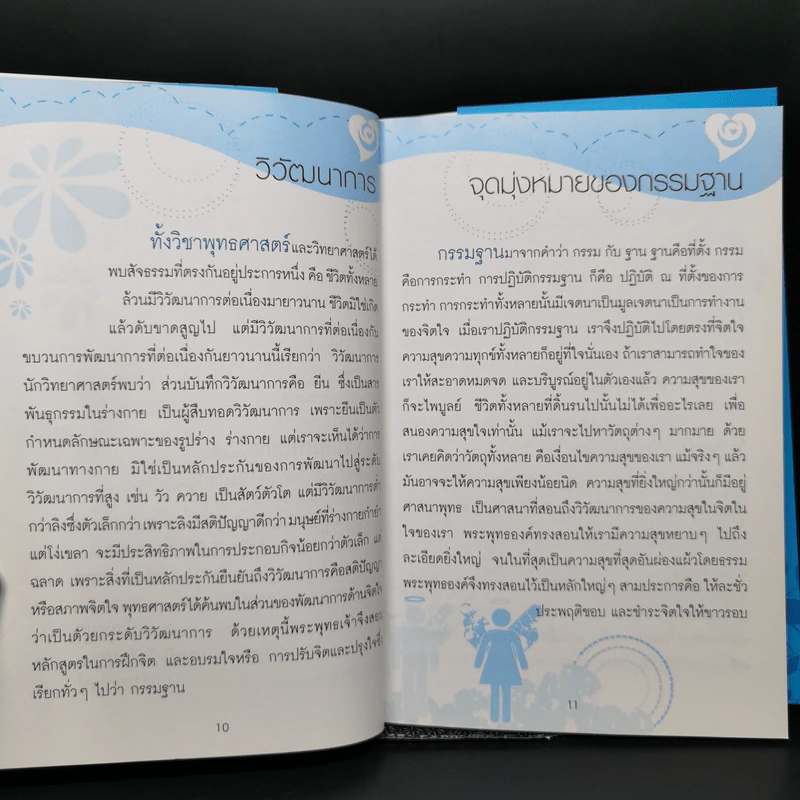 วิวัฒนาการ
ทั้งวิชาพุทธศาสตร์และวิทยาศาสตร์ได้
พบสัจธรรมที่ตรงกันอยู่ประการหนึ่ง คือ ชีวิตทั้งหลาย
ล้วนมีวิวัฒนาการต่อเนื่องมายาวนาน ชีวิตมิใช่เกิด
แล้วดับขาดสูญไป แต่มีวิวัฒนาการที่ต่อเนื่องกัน
ขบวนการพัฒนาการที่ต่อเนื่องกันยาวนานนี้เรียกว่า วิวัฒนาการ
นักวิทยาศาสตร์พบว่า ส่วนบันทึกวิวัฒนาการคือ ยีน ซึ่งเป็นสาร
พันธุกรรมในร่างกาย เป็นผู้สืบทอดวิวัฒนาการ เพราะยีนเป็นตัว
กำหนดลักษณะเฉพาะของรูปร่าง ร่างกาย แต่เราจะเห็นได้ว่าการ
พัฒนาทางกาย มิใช่เป็นหลักประกันของการพัฒนาไปสู่ระดับ
วิวัฒนาการที่สูง เช่น วัว ควาย เป็นสัตว์ตัวโต แต่มีวิวัฒนาการต่ำ
กว่าลิงซึ่งตัวเล็กกว่า เพราะลิงมีสติปัญญาดีกว่า มนุษย์ที่ร่างกายกำยำ
แต่โง่เขลา จะมีประสิทธิภาพในการประกอบกิจน้อยกว่าตัวเล็ก แต่
ฉลาด เพราะสิ่งที่เป็นหลักประกันยืนยันถึงวิวัฒนาการคือสติปัญญา
หรือสภาพจิตใจ พุทธศาสตร์ได้ค้นพบในส่วนของพัฒนาการด้านจิตใจ
ว่าเป็นตัวยกระดับวิวัฒนาการ ด้วยเหตุนี้พระพุทธเจ้าจึงสอน
หลักสูตรในการฝึกจิต และอบรมใจหรือ การปรับจิตและปรุงใจซึ่ง
เรียกทั่วๆ ไปว่า กรรมฐาน
10
จุดมุ่งหมายของกรรมฐาน
กรรมฐานมาจากคำว่า กรรม กับ ฐาน ฐานคือที่ตั้ง กรรม
คือการกระทำ การปฏิบัติกรรมฐาน ก็คือ ปฏิบัติ ณ ที่ตั้งของการ
กระทำ การกระทำทั้งหลายนั้นมีเจตนาเป็นมูลเจตนาเป็นการทำงาน
ของจิตใจ เมื่อเราปฏิบัติกรรมฐาน เราจึงปฏิบัติไปโดยตรงที่จิตใจ
ความสุขความทุกข์ทั้งหลายก็อยู่ที่ใจนั่นเอง ถ้าเราสามารถทำใจของ
เราให้สะอาดหมดจด และบริบูรณ์อยู่ในตัวเองแล้ว ความสุขของเรา
ก็จะไพบูลย์ ชีวิตทั้งหลายที่ดิ้นรนไปนั้นไม่ได้เพื่ออะไรเลย เพื่อ
สนองความสุขใจเท่านั้น แม้เราจะไปหาวัตถุต่างๆ มากมาย ด้วย
เราเคยคิดว่าวัตถุทั้งหลาย คือเงื่อนไขความสุขของเรา แม้จริงๆ แล้ว
มันอาจจะให้ความสุขเพียงน้อยนิด ความสุขที่ยิ่งใหญ่กว่านั้นก็มีอยู่
ศาสนาพุทธ เป็นศาสนาที่สอนถึงวิวัฒนาการของความสุขในจิตใน
ใจของเรา พระพุทธองค์ทรงสอนให้เรามีความสุขหยาบๆ ไปถึง
ละเอียดยิ่งใหญ่ จนในที่สุดเป็นความสุขที่สุดอันผ่องแผ้วโดยธรรม
พระพุทธองค์จึงทรงสอนไว้เป็นหลักใหญ่ๆ สามประการคือ ให้ละชั่ว
ประพฤติชอบ และชำระจิตใจให้ขาวรอบ
11